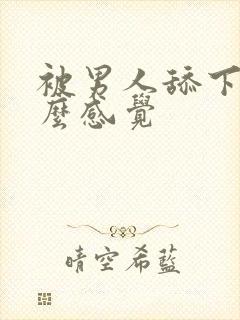 被男人舔下
麼感覺
晴空希藍